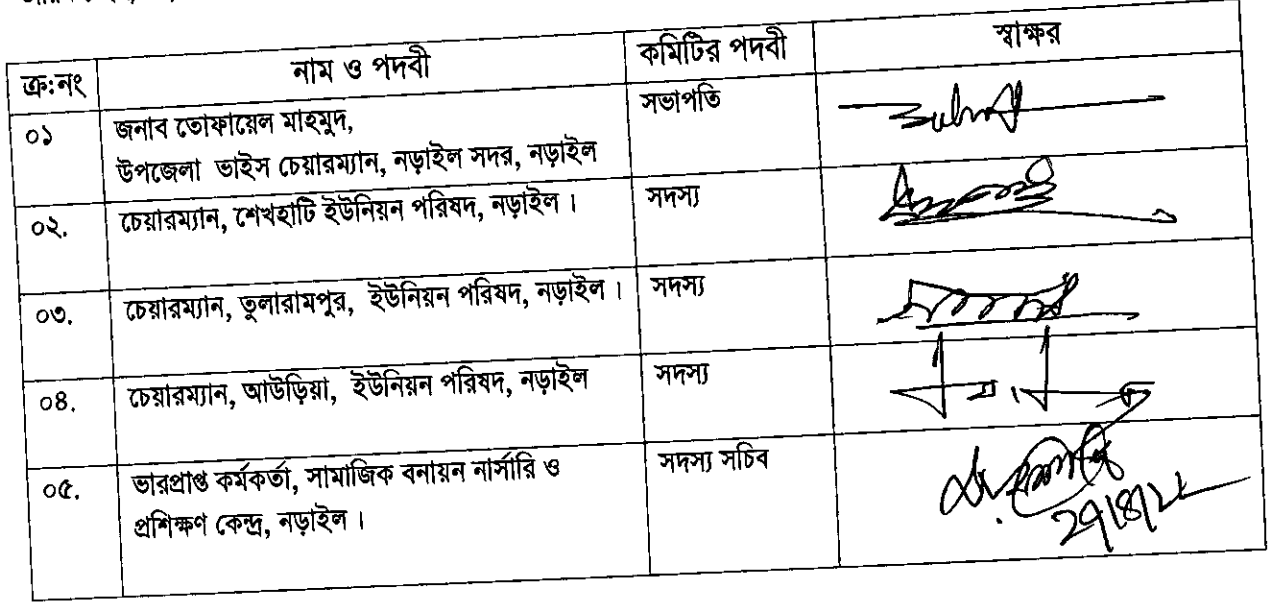 ক্র:নং নাম ও পদবী কমিটির পদবী স্বাক্ষর
০১ জনাব তোফায়েল মাহমুদ, সভাপতি
উপজেলা ভাইস চেয়ারম্যান, নড়াইল সদর, নড়াইল
০২. চেয়ারম্যান, শেখহাটি ইউনিয়ন পরিষদ, নড়াইল। সদস্য
০৩. চেয়ারম্যান, তুলারামপুর, ইউনিয়ন পরিষদ, নড়াইল। সদস্য
০৪. চেয়ারম্যান, আউড়িয়া, ইউনিয়ন পরিষদ, নড়াইল সদস্য
০৫. ভারপ্রাপ্ত কর্মকর্তা, সামাজিক বনায়ন নার্সারি ও সদস্য সচিব
প্রশিক্ষণ কেন্দ্র, নড়াইল।